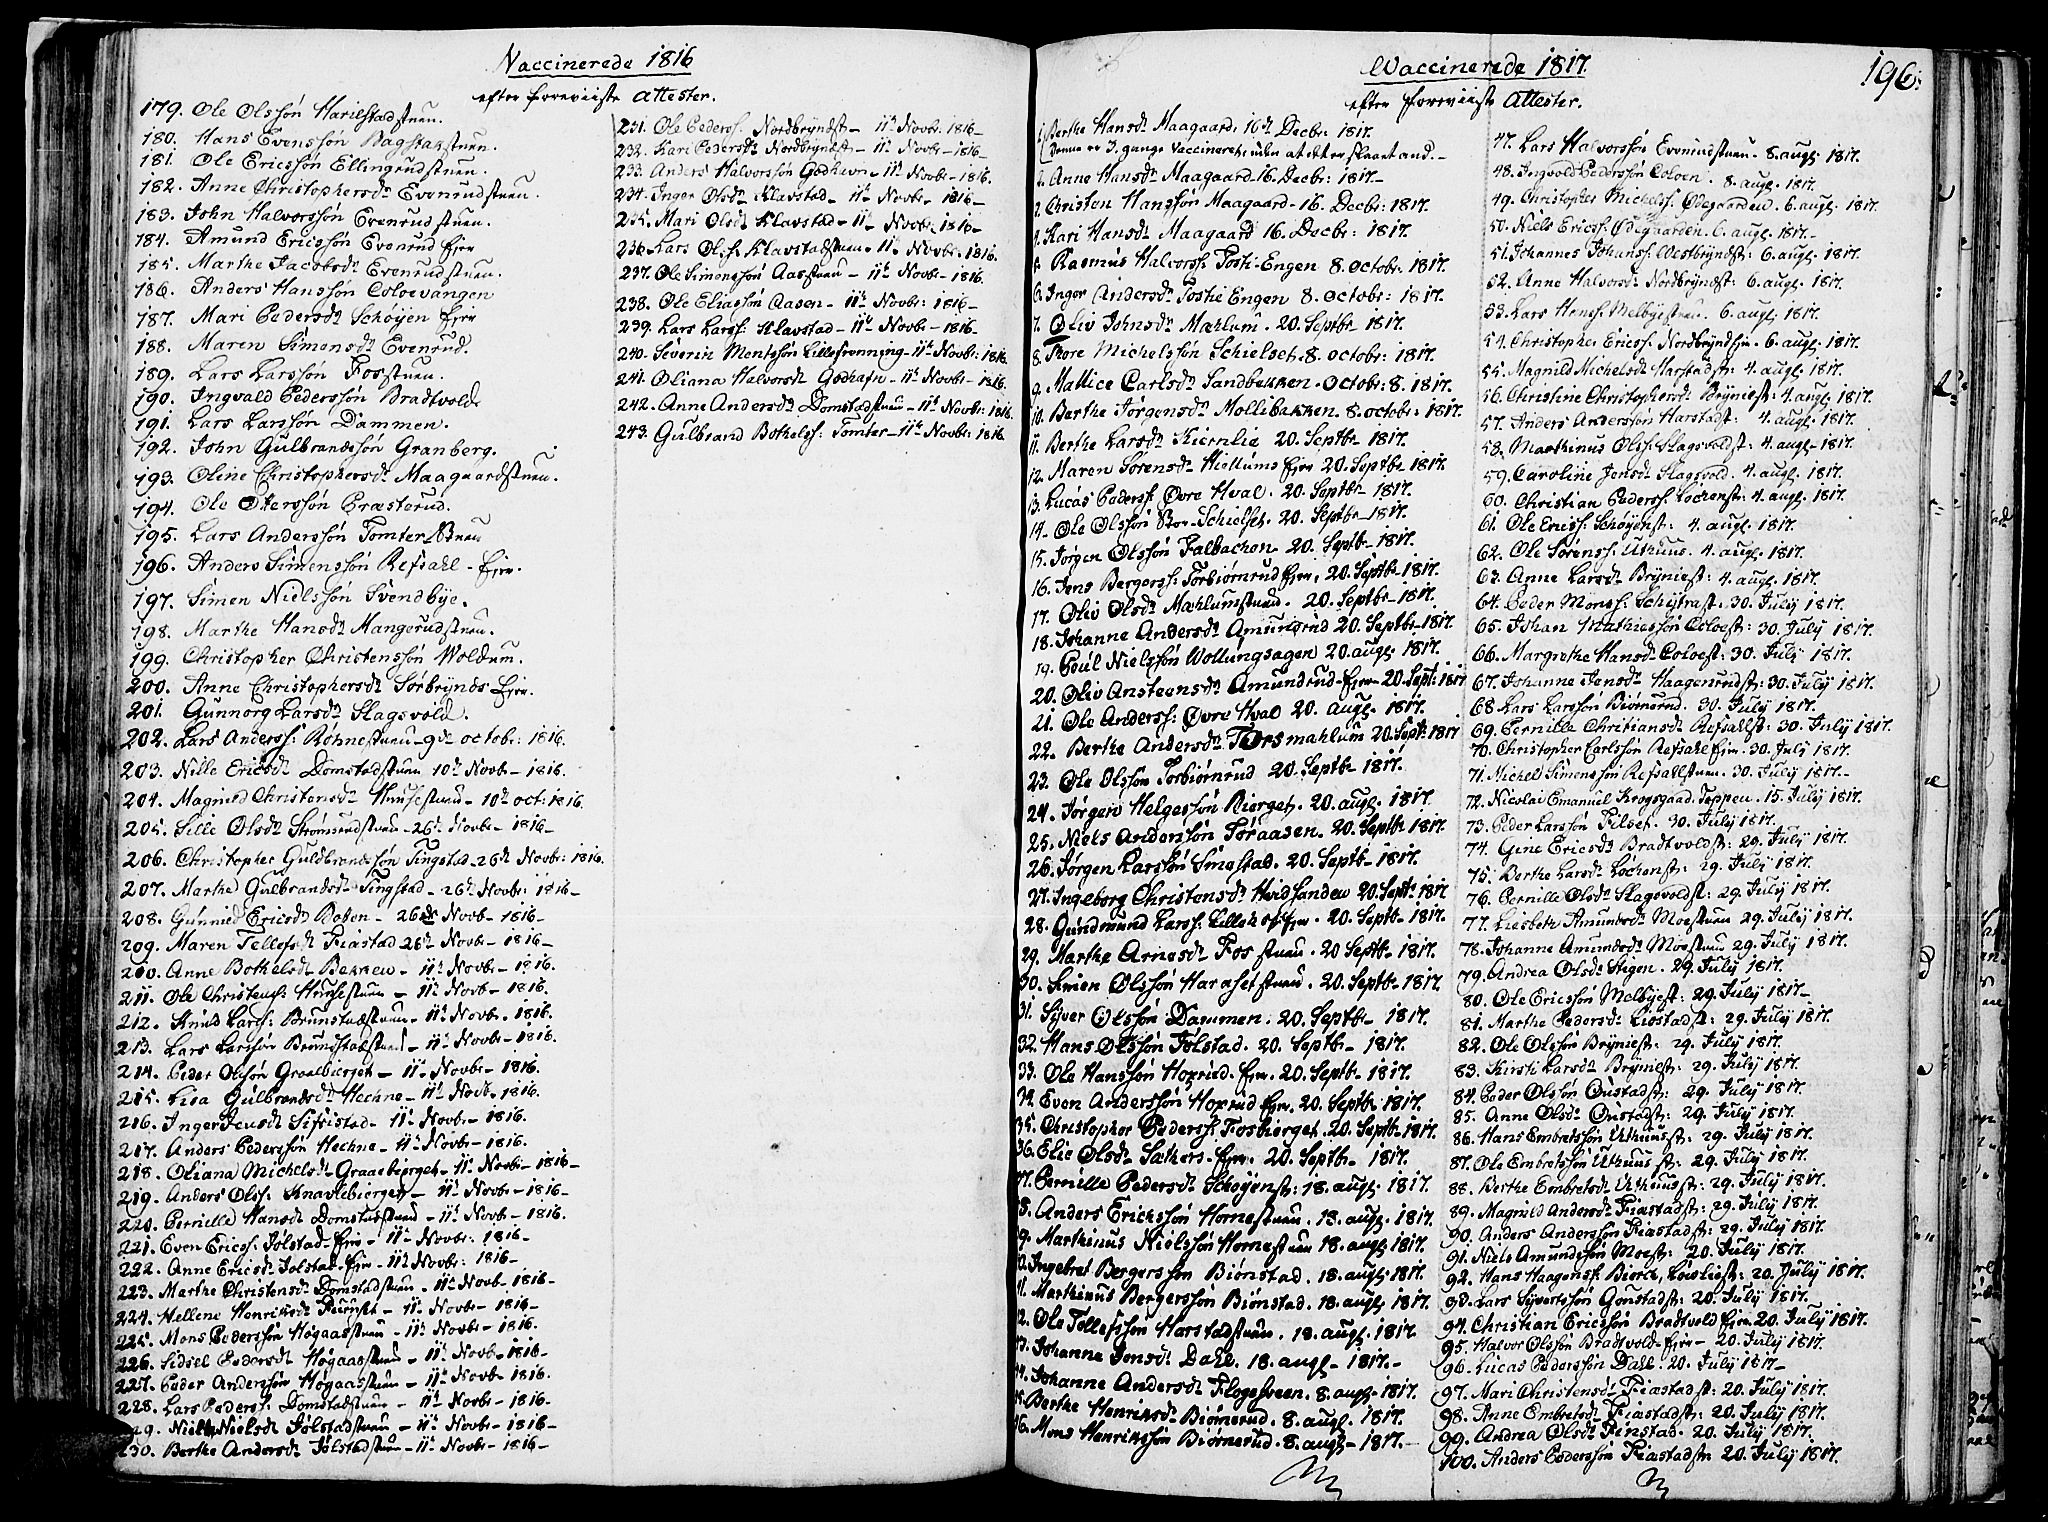 Vaccinerede 1816
efter foreviiste Attester.
179. Ole Olssøn Harilstadstuen.
180. Hans Evenssøn Bagstakstuen.
181. Ole Ericssøn Ellingrudstuen.
182. Anne Christophersdr Evenrudstuen.
183. John Halvorssøn Evenrudstuen.
184. Amund Ericssøn Evenrud Ejer
185. Marthe Jacobsdr Evenrudstuen.
186. Anders Hanssøn Coloevangen
187. Mari Pedersdr Schøyen Ejer
188. Maren Simensdr Evenrud.
189. Lars Larssøn Fosstuen.
190. Ingvald Pederssøn Bradtvolds
191. Lars Larssøn Dammen.
192. John Gulbrandssøn Granberg.
193. Oline Christophersdr Maagaardstuen.
194. Ole Oterssøn Præsterud.
195. Lars Anderssøn Tomterstuen
196. Anders Simenssøn Refsahl - Ejer.
197. Simen Nielssøn Svendbye.
198. Marthe Hansdr Mangerudstuen.
199. Christopher Christenssøn Woldum.
200. Anne Christophersdr Sørbrynds Ejer.
201. Gunnorg Larsdr Slagsvold.
202. Lars Anderss: Røhnestuen - 9de octobr: 1816.
203. Nille Ericsdr Domstadstuen 10de Novbr - 1816.
204. Magnild Christensdr Huusestuen - 10de oct: 1816.
205. Sille Olsdr Strømsrudstuen - 26de Novbr - 1816 -
206. Christopher Guldbrandssøn Tingstad - 26de Novbr: 1816.
207. Marthe Gulbrandsdr Tingstad - 26de Novbr: 1816 -
208. Gunnild Ericsdr Roten - 26de Novbr - 1816 -
209. Maren Tellefsdr Fiæstad 26de Novbr - 1816 -
210. Anne Bothelsdr Bekken - 11te Novbr - 1816.
211. Ole Christenss: Huusestuen - 11te Novbr - 1816.
212. Knud Larss: Brunstadstuen - 11te Novbr. 1816.
213. Lars Larssøn Brunstadstuen - 11te Novbr - 1816.
214. Peder Olssøn Graaebierget - 11te Novbr - 1816.
215. Lisa Gulbrandsdr Hechne - 11te Novbr - 1816.
216. Inger Jensdr Sifristad - 11te Novbr - 1816.
217. Anders Pederssøn Hechne - 11te Novbr - 1816.
218. Oliana Michelsdr Graaebierget - 11te Novbr - 1816 -
219. Anders Olss: Knavlebierget - 11te Novbr - 1816 -
220. Pernille Hansdr Domstadstuen - 11te Novbr - 1816.
221. Even Ericss: Jølstad - Ejer - 11te Novbr: 1816 -
222. Anne Ericsdr Jølstad. Ejer - 11te Novbr: 1816 -
223. Marthe Christensdr Domstadstuen - 11te Novbr - 1816 -
224. Hellene Henriksdr - 11te Novbr - 1816 -
225. Mons Pederssøn Høgaasstuen - 11te Novbr - 1816.
226. Sidsel Pedersdr Høgaasstuen - 11te Novbr - 1816 -
227. Peder Anderssøn Høgaasstuen - 11te Novbr - 1816.
228. Lars Pederss: Domstadstuen - 11te Novbr - 1816 -
229. Nille Nielsdr Jølstadstuen - 11te Novbr - 1816 -
230. Berthe Andersdr Jølstadstuen - 11te Novbr - 1816 -
231. Ole Pederss. Nordbryndst - 11te Novbr: 1816 -
232. Kari Pedersdr Nordbryndst - 11te Novbr - 1816 -
233. Anders Halvorssøn Godhavn - 11te Novbr - 1816.
234. Inger Olsdr Klavstad - 11te Novbr - 1816 -
235. Mari Olsdr Klavstad - 11te Novbr: 1816 -
236. Lars Olss Klavstadstuen - 11te Novbr. 1816.
237. Ole Simenssøn Aasstuen - 11te Novbr - 1816.
238. Ole Eliassøn Aasen - 11te Novbr: 1816 -
239. Lars Larss: Klavstad - 11te Novbr - 1816 -
240. Severin Mentssøn Lillefrønning - 11te Novbr: 1816
241. Oliana Halvorsdr Godhafn - 11te Novbr - 1816.
242. Anne Andersdr Domstadstuen - 11te Novbr: 1816.
243. Gulbrand Bothelss: Tomter - 11te Novbr: 1816.
Waccinerede 1817.
efter foreviiste Attester.
196.
1. Berthe Hansdr Maagaard. 16de Decbr: 1817.
Denne er 3. gange Vaccineret, uden at det er slaaet and. -
2. Anne Hansdr Maagaard - 16. Decbr: 1817 -
3. Christen Hanssøn Maagaard - 16. Decbr: 1817.
4. Kari Hansdr Maagaard 16. Decbr: 1817.
5. Rasmus Halvorss: Toski-Engen 8. octobr. 1817.
6. Inger Andersdr Toskie Engen 8. octobr: 1817.
7. Oliv Johnsdr Mæhlum. 20. Septbr 1817.
8. Thore Michelssøn Schielset. 8. octobr: 1817.
9. Mallice Carlsdr Sandbekken - octobr: 8. 1817.
10. Berthe Jørgensdr Mollibakken. 8. octobr: 1817.
11. Berthe Larsdr Kiernlie 20. Septbr 1817.
12. Maren Sørensdr Hiellums Ejer 20. Septbr 1817.
13. Lucas Pederss: Øvre Hval. 20. Septbr - 1817.
14. Ole Olssøn Schielset. 20. Septbr - 1817.
15. Jørgen Olssøn Falbachen - 20. Septbr - 1817.
16. Jens Bergerss: Torbiørnrud Ejer. 20. Septbr - 1817.
17. Oliv Olsdr Mæhlumstuen. 20. Septbr - 1817.
18. Johanne Andersdr Amundrud 20. Septbr - 1817
19. Poul Nielssøn Wollungsagen 20. augl. 1817.
20. Oliv Ansteensdr Amundrud - Ejer - 20. Sept: 1817
21. Ole Anderss: Øvre Hval 20. augl. 1817.
22. Berthe Andersdr Torsmæhlum 20. Sept: 1817
23. Ole Olssøn Torbiørnrud 20. Septbr 1817.
24. Jørgen Helgessøn Bierget. 20. augl. 1817.
25. Niels Anderssøn Toraasen. 20. Septbr 1817.
26. Jørgen Larssøn Smestad. 20. Septbr - 1817.
27. Ingeborg Christensdr Hvidsanden 20. Septbr 1817
28. Gundmund Larss: Lillehof Ejer. 20. Septbr 1817.
29. Marthe Arnesdr Fosstuen. 20 Septbr - 1817.
30. Simen Olssøn Harahstuen. 20. Septbr - 1817.
31. Syver Olssøn Dammen. 20. Septbr - 1817.
32. Hans Olssøn Jølstad. 20. Septbr - 1817.
33. Ole Hanssøn Hoxrud. Ejer. 20. Septbr - 1817.
34. Even Anderssøn Hoxrud Ejer. 20. Septbr 1817.
35. Christopher Pederss: Fosbierget. 20. Septbr 1817.
36. Elie Olsdr Sæthers - Ejer. 20. Septbr - 1817.
37. Pernille Pedersdr Schøyenst: 18. augl. 1817.
38. Anders Erickssøn Hornestuen. 18. augl. 1817.
39. Marthinus Nielssøn Hornestuen 18. augl 1817.
40. Ingebret Bergerssøn Biønstad. 18. augl 1817.
41. Marthinus Bergerssøn Biønstad. 18. augl 1817.
42. Ole Tollefssøn Harstadstuen. 18. augl. 1817.
43. Johanne Jensdr Dahl. 18. augl - 1817 -
44. Johanne Andersdr Flogesveen. 8. augl. 1817.
45. Berthe Henriksdr Biørnerud. 8. augl. 1817.
46. Mons Henrikssøn Biørnerud. 8. augl - 1817. -
47. Lars Halvorssøn Evenrudstuen. 8. augl. 1817.
48. Ingvold Pederssøn Coloen. 8. augl. 1817.
49. Christopher Michelss. Ødegaarden. 6. augl. 1817.
50. Niels Ericss. Ødegaarden. 6. augl. 1817 -
51. Johannes Johanss: Westbryndst: 6. augl. 1817.
52. Anne Halvorsdr Nordbryndst: 6. augl. 1817.
53. Lars Hanss: Melbyestuen. 6. augl. 1817.
54. Christopher Ericss. Nordbryndejer. 6. augl. 1817.
55. Magnild Michelsdr Harstadst: 4. augl 1817.
56. Christine Christophersdr Bryniest: 4. augl. 1817.
57. Anders Anderssøn Harstadst: 4. augl. 1817.
58. Marthinus Olss: Slagsvoldst: 4. augl - 1817.
59. Caroline Jensdr Slagsvold. 4. augl. 1817.
60. Christian Pederss. Lochenst: 4. augl. 1817.
61. Ole Ericss: Schøyenst: 4. augl. 1817.
62. Ole Sørenss: Uthuus. 4. augl. 1817.
63. Anne Larsdr Bryniest: 4. augl. 1817.
64. Peder Monss: Schytrast. 30. July 1817.
65. Johan Mathiassøn Coloest: 30. July 1817.
66. Margrethe Hansdr Coloest: 30. July 1817.
67. Johanne Jensdr Haagensrudst: 30. July 1817.
68. Lars Larssøn Biørnerud. 30. July 1817.
69. Pernille Christiansdr Refsahlst: 30. July 1817.
70. Christopher Carlssøn Refsahl Ejer. 30. July 1817.
71. Michel Simenssøn Refsahlstuen. 30. July 1817 -
72. Nicolai Emanuel Krogsgaard. Teppen. 15. July 1817.
73. Peder Larssøn Filset. 30. July 1817.
74. Gine Ericsdr Bradtvoldst: 29. July 1817.
75. Berthe Larsdr Lochenst: 29. July 1817.
76. Pernille Olsdr Slagsvoldst: 29. July 1817.
77. Liesbeth Amundsdr Moestuen 29. July 1817.
78. Johanne Amundsdr Moestuen 29. July 1817.
79. Andrea Olsdr Stigen. 29. July 1817.
80. Ole Ericssøn Melbyest: 29. July 1817 -
81. Marthe Pedersdr Liøstadst: 29. July 1817.
82. Ole Olssøn Bryniest: 29. July 1817.
83. Kirsti Larsdr Bryniest: 29. July 1817.
84. Peder Olssøn Onstadst: 29. July 1817.
85. Anne Olsdr Onstadst: 29. July 1817.
86. Hans Embretssøn Uthuusst: 29. July 1817.
87. Ole Embretssøn Uthuusst: 29. July 1817.
88. Berthe Embretsdr Uthuusst: 29. July 1817.
89. Magnild Andersdr Fiæstadst: 29. July 1817.
90. Anders Anderssøn Fiæstadst: 29. July 1817.
91. Niels Amundssøn Moest: 20. July 1817.
92. Hans Haagenss: Bierck, 20. July 1817.
93. Lars Syvertssøn Gonstadst: 20. July 1817.
94. Christian Ericssøn Bradtvold Ejer. 20. July 1817.
95. Halvor Olssøn Bradtvold - Ejer - 20. July 1817.
96. Lucas Pederssøn Dahl. 20. July 1817 -
97. Mari Christensdr Fiæstadst: 20. July 1817.
98. Anne Embretsdr Fiæstadst: 20. July 1817.
99. Andrea Olsdr Finstad. 20. July 1817.
100. Anders Pederssøn Fiæstadst 20. July 1817.